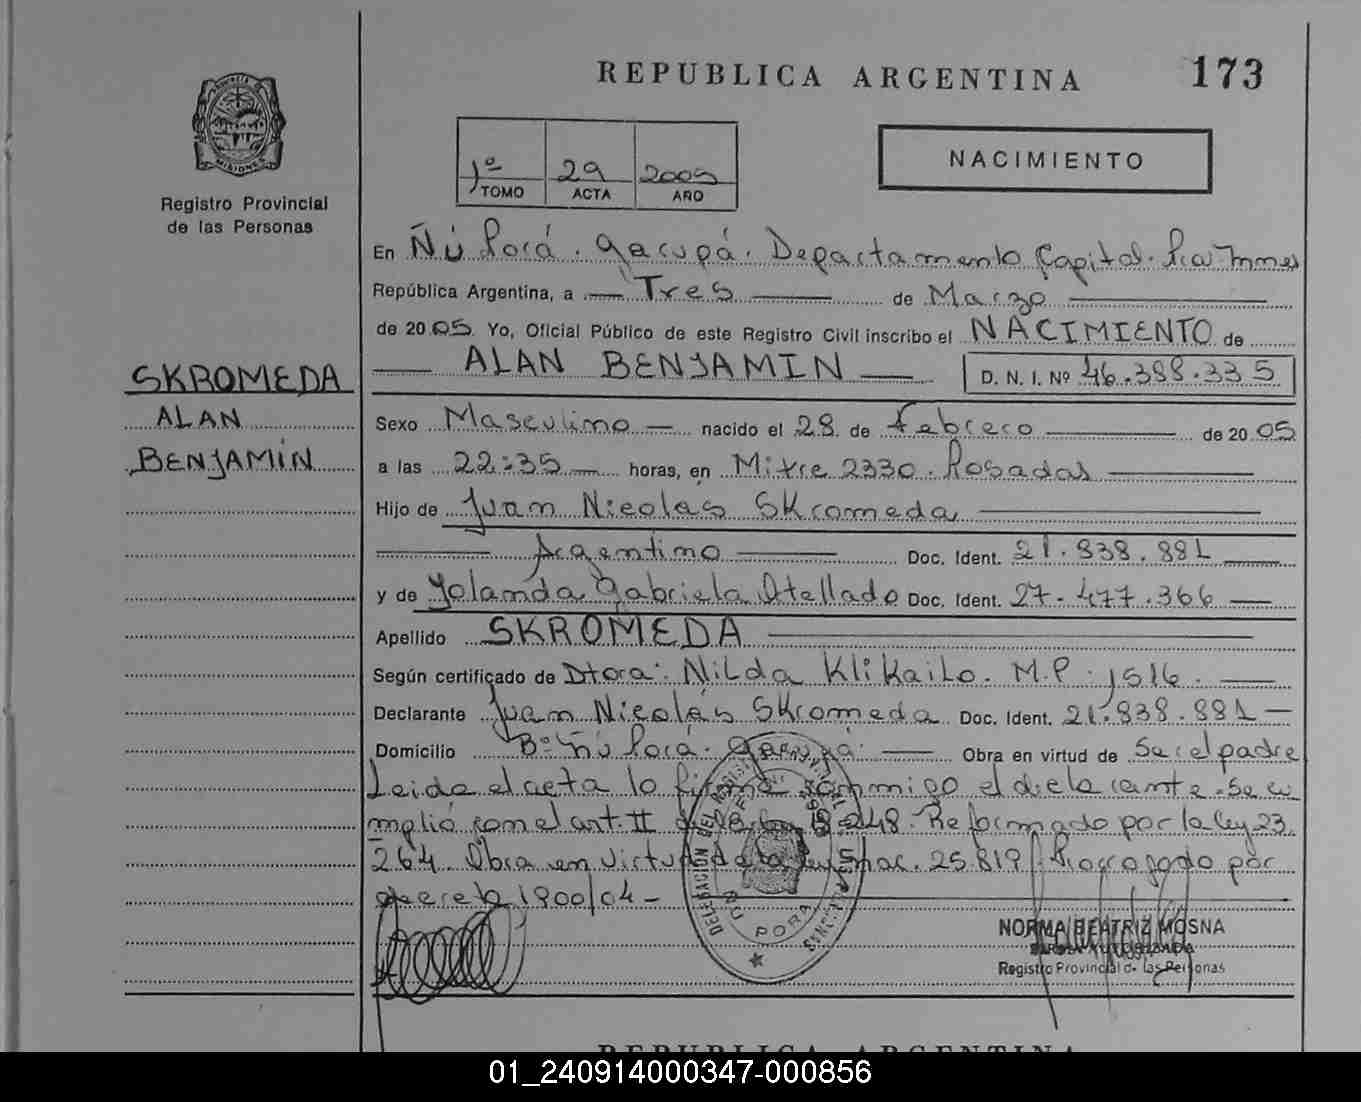 REPUBLICA ARGENTINA 173
MISIONES
Registro Provincial
de las Personas
1º 29 2005
TOMO ACTA AÑO
NACIMIENTO
En Ñú Porá. Garupá. Departamento Capital. Pcia. Mnes
República Argentina, a Tres de Marzo
de 2005. Yo, Oficial Público de este Registro Civil inscribo el NACIMIENTO de
ALAN BENJAMIN D. N. I. Nº 46.388.335
SKROMEDA
ALAN
BENJAMÍN
Sexo Masculino nacido el 28 de Febrero de 2005
a las 22:35 horas, en Mitre 2330. Posadas
Hijo de Juan Nicolás Skromeda
Argentino Doc. Ident. 21.838.881
y de Yolanda Gabriela Otellado Doc. Ident. 27.477.366
Apellido SKROMEDA
Según certificado de Dtora: Nilda Klikailo. M.P: 1516.
Declarante Juan Nicolás Skromeda Doc. Ident. 21.838.881
Domicilio Bº Ñú Porá. Garupá. Obra en virtud de Ser el padre
Leida el acta la firma conmigo el declarante. Se cu
mplió con el art. II de la Ley 18.248. Reformado por la ley 23.
264. Obra en virtud de la Ley nac. 25.819. Prorrogado por
decreto 1900/04-
DELEGACION DEL REGISTRO PROVINCIAL DE LAS PERSONAS
ÑU PORA
NORMA BEATRIZ MOSNA
FIRMA AUTORIZADA
Registro Provincial de las Personas
REPUBLICA ARGENTINA
01_240914000347-000856